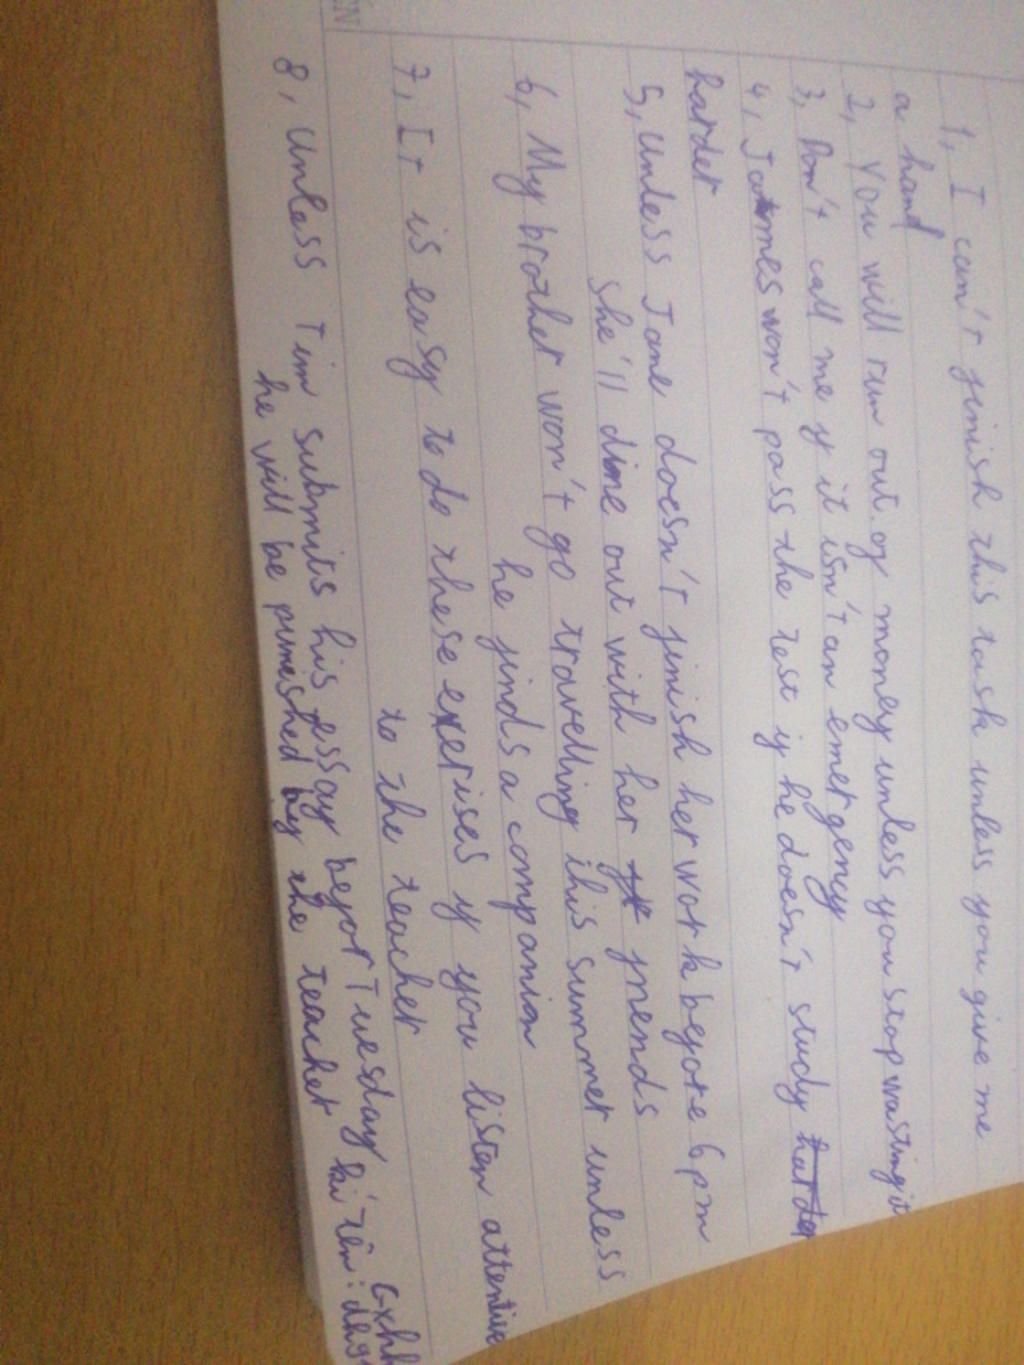 1, I can't finish this task unless you give me
a hand
2, You will run out of money unless you stop wasting it
3, Don't call me if it isn't an emergency
4, James won't pass the test if he doesn't study
harder
5, Unless Jane doesn't finish her work before 6 pm
she'll dine out with her friends
6, My brother won't go travelling this summer unless
he finds a companion
7, It is easy to do these exerises if you listen attentive
to the teacher
8, Unless Tim submits his essay befor Tuesday
he will be punished by the teacher